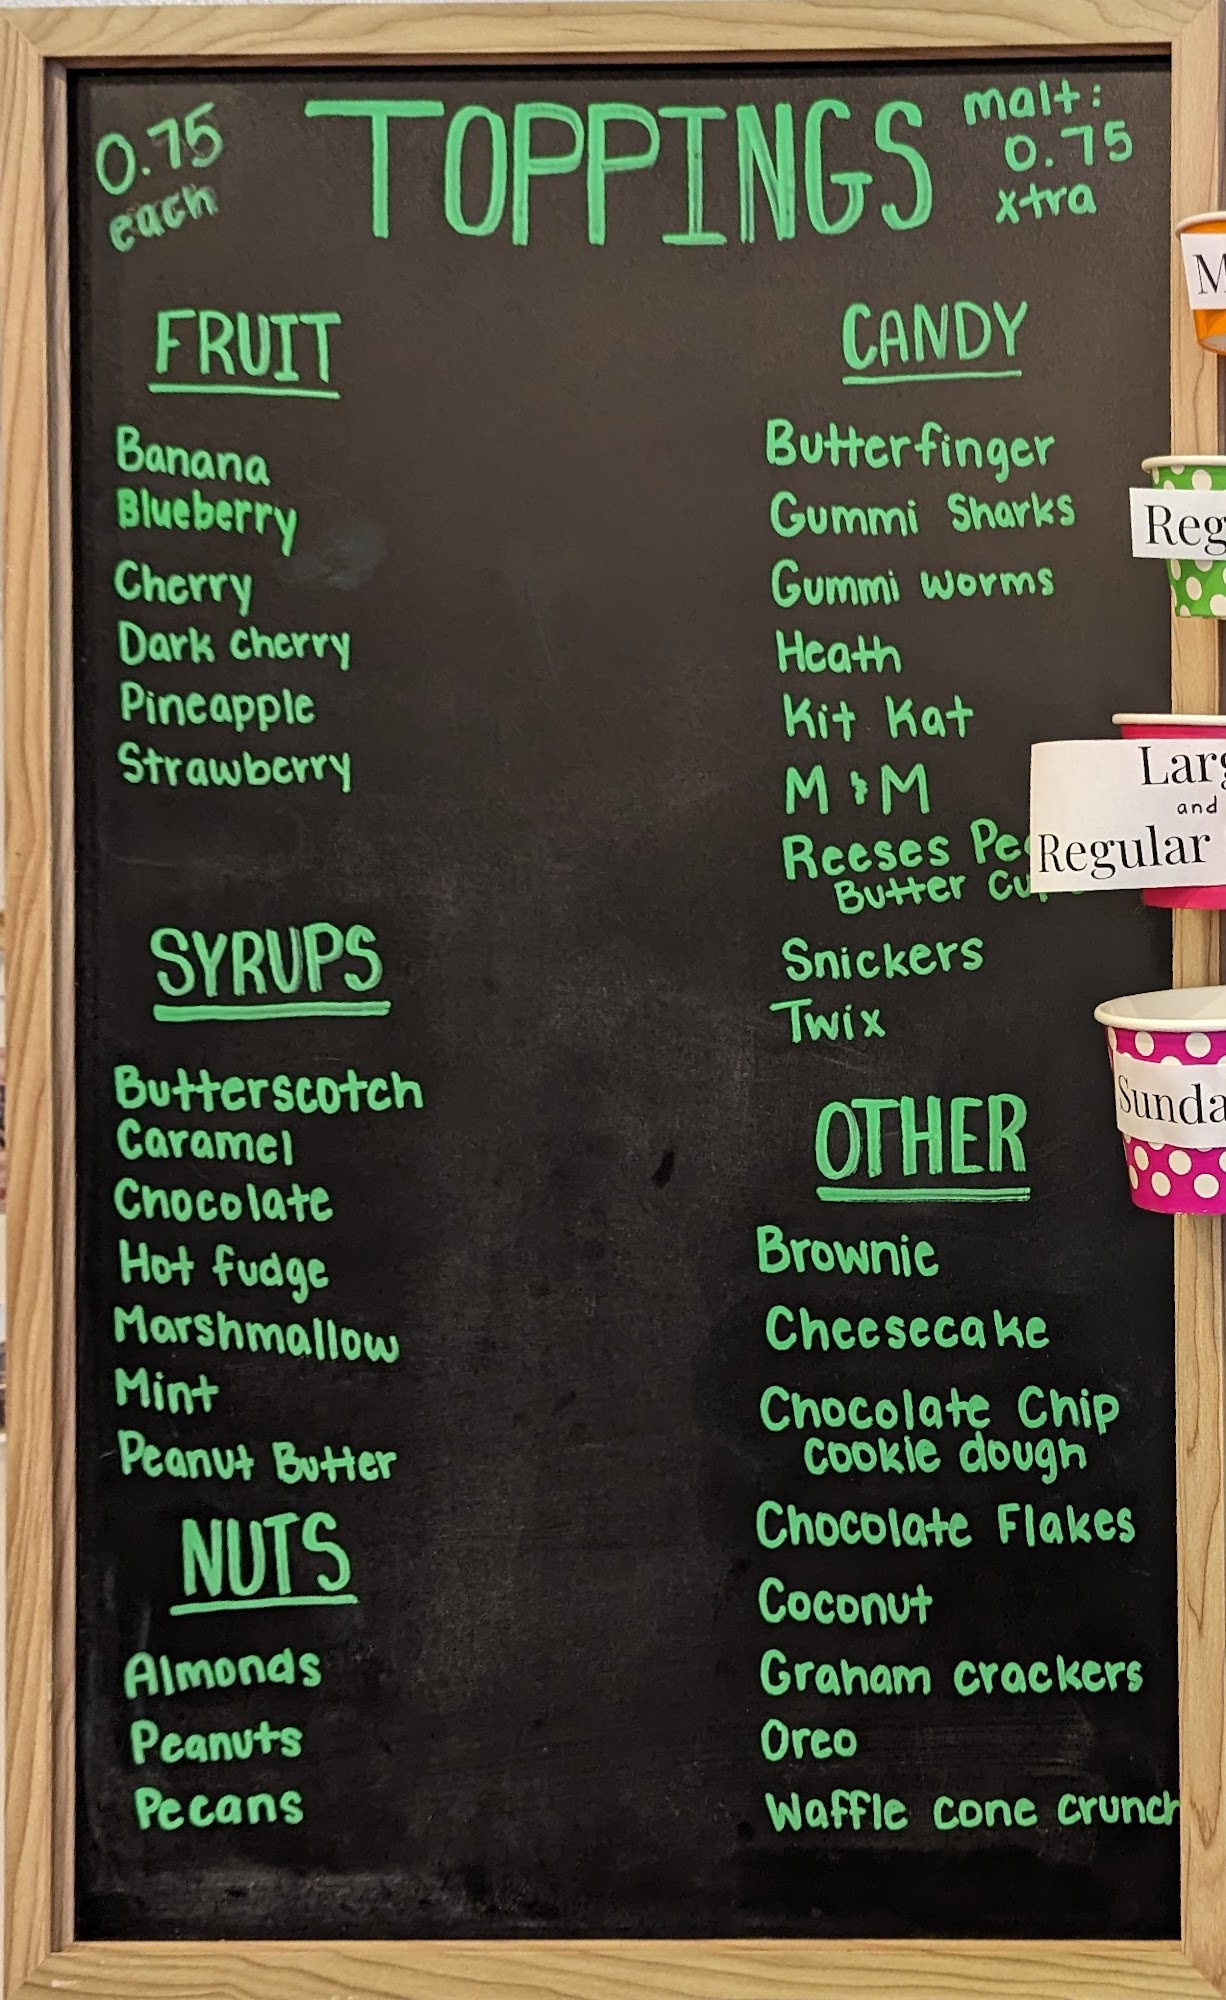 0.75
each
TOPPINGS
malt:
0.75
xtra
FRUIT
Banana
Blueberry
Cherry
Dark cherry
Pineapple
Strawberry
SYRUPS
Butterscotch
Caramel
Chocolate
Hot fudge
Marshmallow
Mint
Peanut Butter
NUTS
Almonds
Peanuts
Pecans
CANDY
Butterfinger
Gummi Sharks
Gummi worms
Heath
Kit Kat
M & M
Reeses
Butter
Snickers
Twix
OTHER
Brownie
Cheesecake
Chocolate Chip
cookie dough
Chocolate Flakes
Coconut
Graham crackers
Oreo
Waffle cone crunch
and
Regular